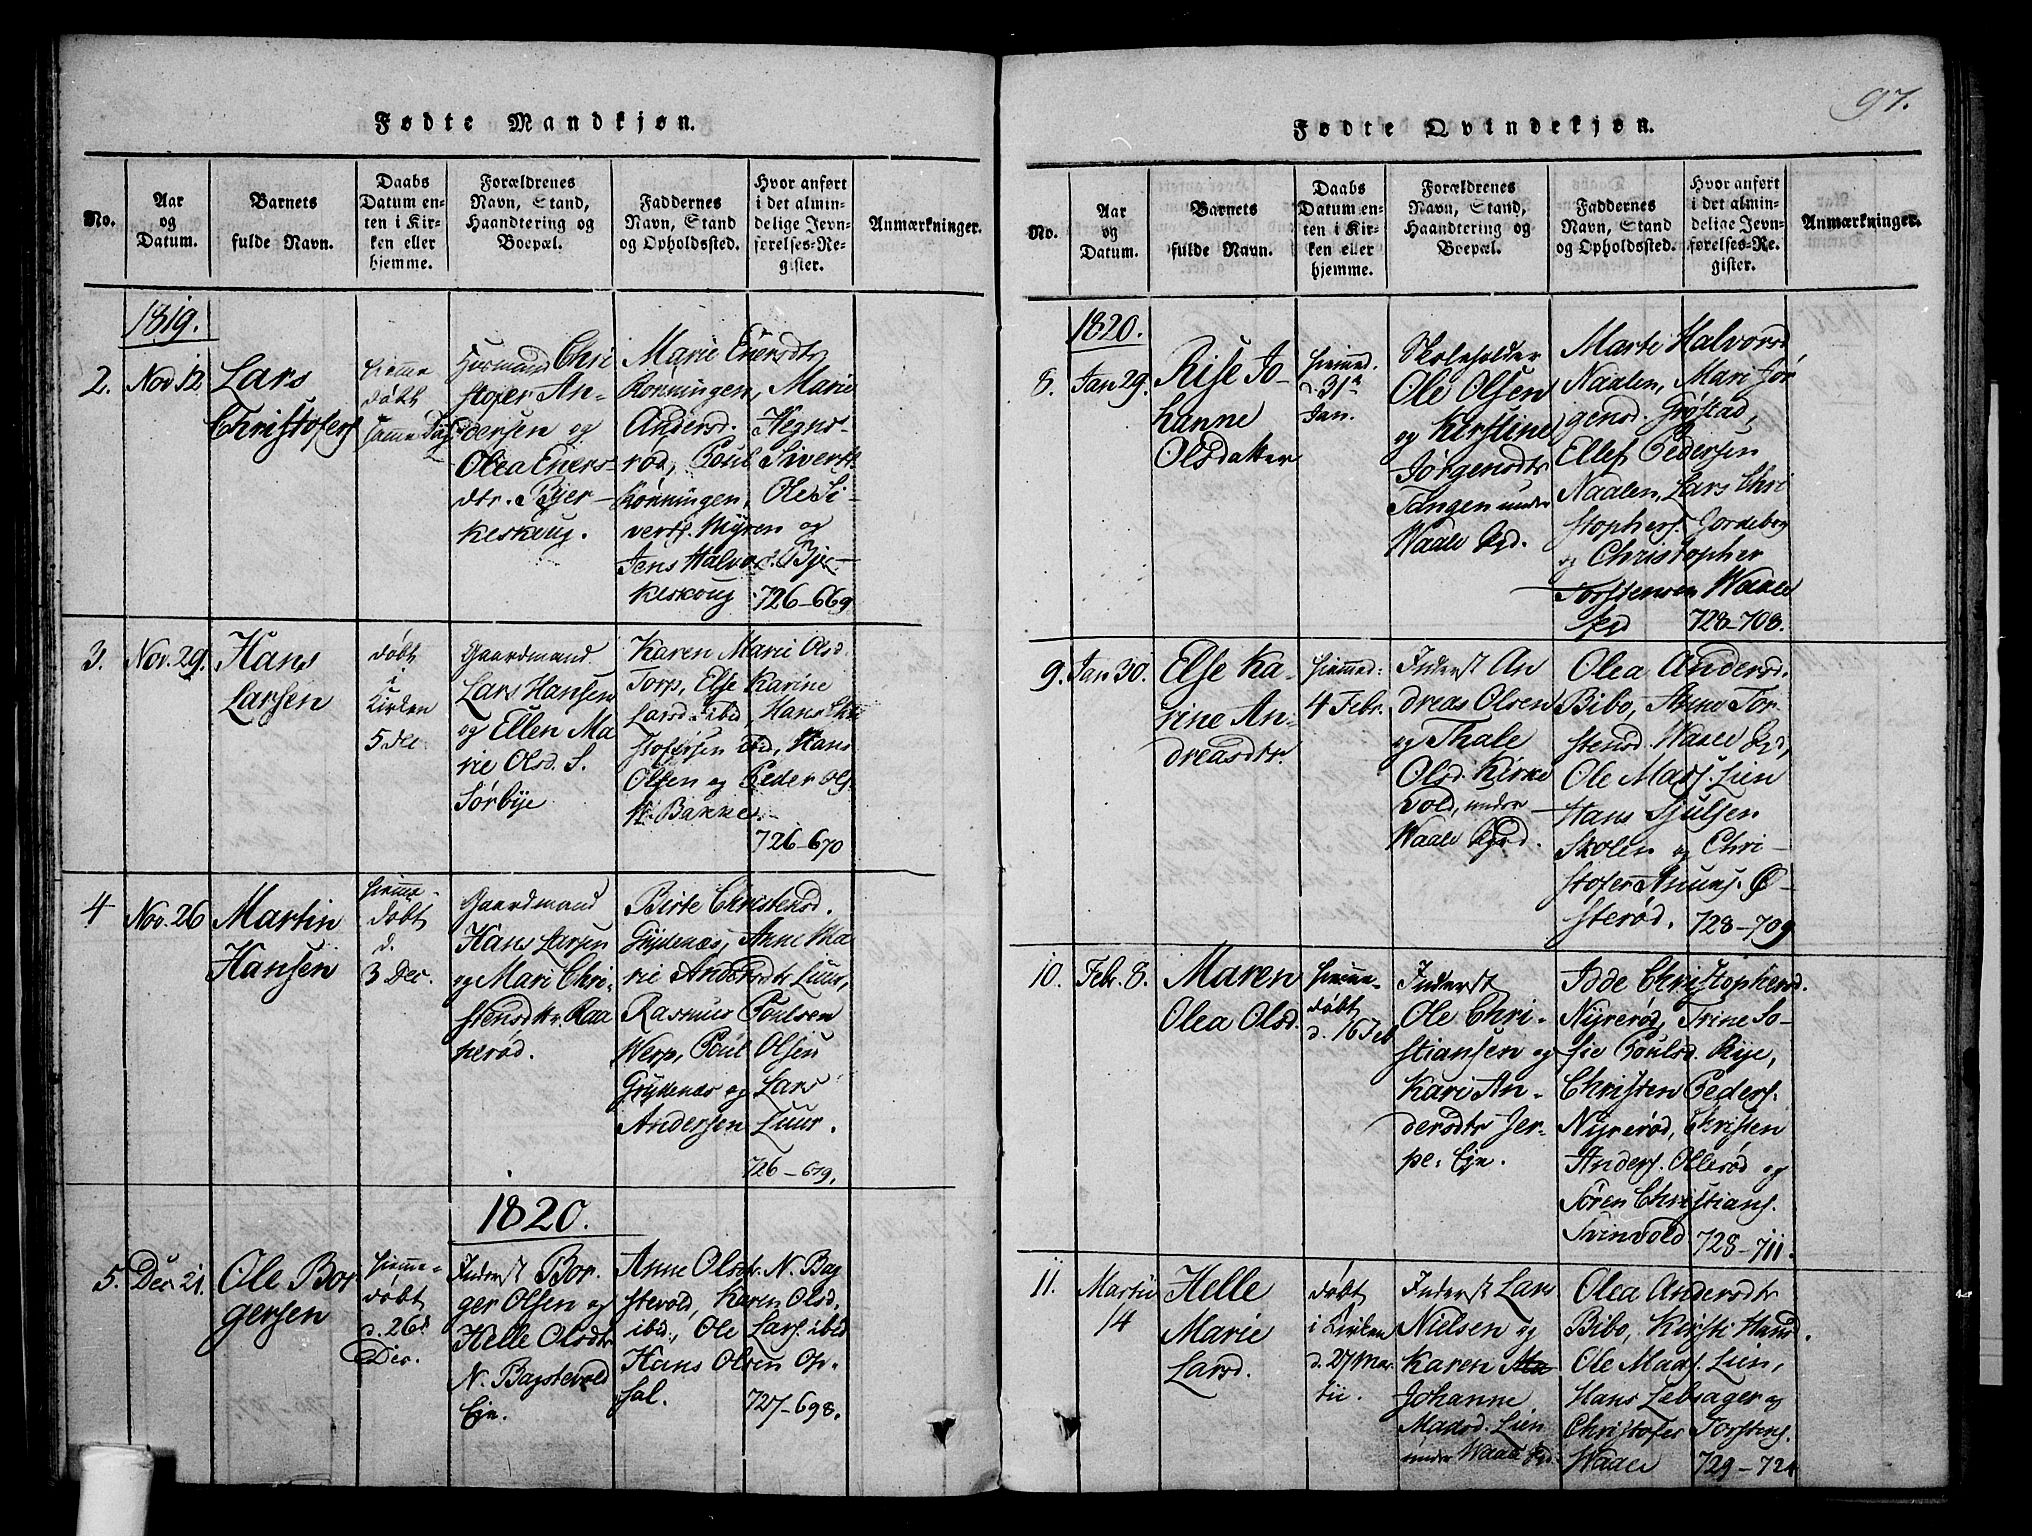 97.
Fødte Mandkjøn.
No.
Aar
og
Datum.
Barnets
fulde Navn.
Daabs
Datum en-
ten i Kir-
ken eller
hjemme.
Forældrenes
Navn, Stand,
Haandtering og
Boepæl.
Faddernes
Navn, Stand
og Opholdssted.
Hvor anført
i det almin-
delige Jevn-
førelses-Re-
gister.
Anmærkninger.
1819.
2.
Nov 12
Lars
Christofers
hiemme
døbt
samme Dag
Huusmand Chri
stofer An-
dersen og
Olea Eners-
dtr. Bjer-
keskoug.
Marie Enersdtr
Ronningen, Marie
Andersd. Hegns-
rød, Poul Sivertf.
Rönningen, Ole Si-
vertf. Myren og
Jens Halvors. Bjer-
keskoug 726-669
3.
Nov. 29.
Hans
Larsen
døbt
i
Kirken
5 Dec.
Gaardmand
Lars Hansen
og Ellen Ma
rie Olsd. S.
Sørbye
Karen Marie Olsd.
Torp, Else Karine
Larsd. ibid, Hans Chri
stofersen ibid, Hans
Olsen og Peder Ols.
Bakke.
726-670
4
Nov. 26
Martin
Hansen
hiemme-
døbt
d.
3 Dec.
Gaardmand
Hans Larsen
og Mari Chri-
stensdtr. Raa
kerød.
Birte Christensd.
Grydenæs, Anne Ma
rie Andersdtr Luur,
Rasmus Poulsen
Werp, Poul Olsen
Grydenæs og Lars
Andersen Luur.
726-679.
1820.
5.
Dec. 21.
Ole Bor
gersen
hiemme-
døbt
d. 26d
Dec.
Inderst Bor.
ger Olsen og
Helle Olsdtr
N. Bagstevold
Eje.
Anne Olsdtr. N. Bag
stevold, Karen Olsd.
ibid., Ole Lars. ibid
Hans Olsen Op-
sal.
727-698.
Fødte Qvindekjøn.
No.
Aar
og
Datum.
Barnets
fulde Navn.
Daabs
Datum en-
ten i Kir-
ken eller
hjemme.
Forældrenes
Navn, Stand,
Haandtering og
Boepæl.
Faddernes
Navn, Stand
og Opholdssted.
Hvor anført
i det almin-
delige Jevn-
førelses-Re-
gister.
Anmærkninger.
1820.
8.
Jan 29.
Rise Jo-
hanne
Olsdatter
hiemmed.
d. 31te
Jan.
Skoleholder
Ole Olsen
og Kirstine
Jørgensdtr
Tangen under
Waale
Marte Halvorsd
Naalen, Mari Jör
gensd. Grøstad,
Ellef Pedersen
Naalen, Lars Chri
stophers. Jordeboy
og Christopher
Torstensen Waale
728-708.
9.
Jan 30.
Else Ka-
rine An-
dreasdtr.
hiemmed:
4 Febr.
Inderst An
dreas Olsen
og Thale
Olsd. Kirke
vold, under
Waale
Olea Andersd.
Bibo, Anne Tor
stensd. Waale
Ole Mads. Lien
Hans Sjulsen
Skolen og Chri-
stofer Anuns. Ø-
sterød. 728-709
10.
Febr. 8.
Maren
Olea Olsd.
hiemme-
døbt
d. 16 Feb
Inderst
Ole Chri-
stiansen og
Kari An-
dersdtr Jer-
pe. Eje.
Idde Christophersd.
Nyrerød, Trine So-
fie Poulsd. Rije,
Christen Peders.
Nyrerød, Christen
Anders. Ollerød og
Sören Christians.
Svinvold 728-711.
11.
Martii
14
Helle
Marie
Larsd.
døbt
i Kirken
d. 27 Mar
tii.
Inderst Lars
Nielsen og
Karen Ma
Johanne
Madsd. Lien
under Waale
Olea Andersdtr
Bibo, Kirsti Hansd.
Ole Mads. Lien,
Hans Lebsager og
Christofer Torstens.
Waale 729-724